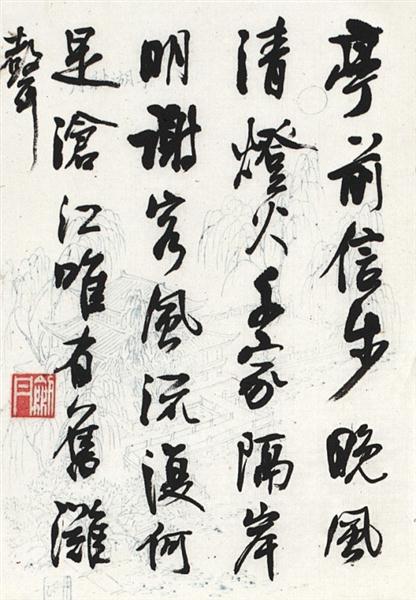 亭前信步晚風
清燈火千家隔岸
明謝客風流復何
是滄江唯有舊灘
聲